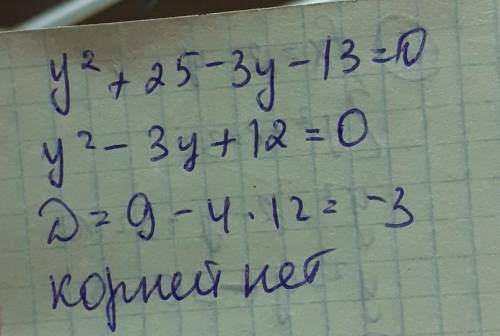 y² + 25 - 3y - 13 = 0
y² - 3y + 12 = 0
D = 9 - 4 · 12 = -3
корней нет